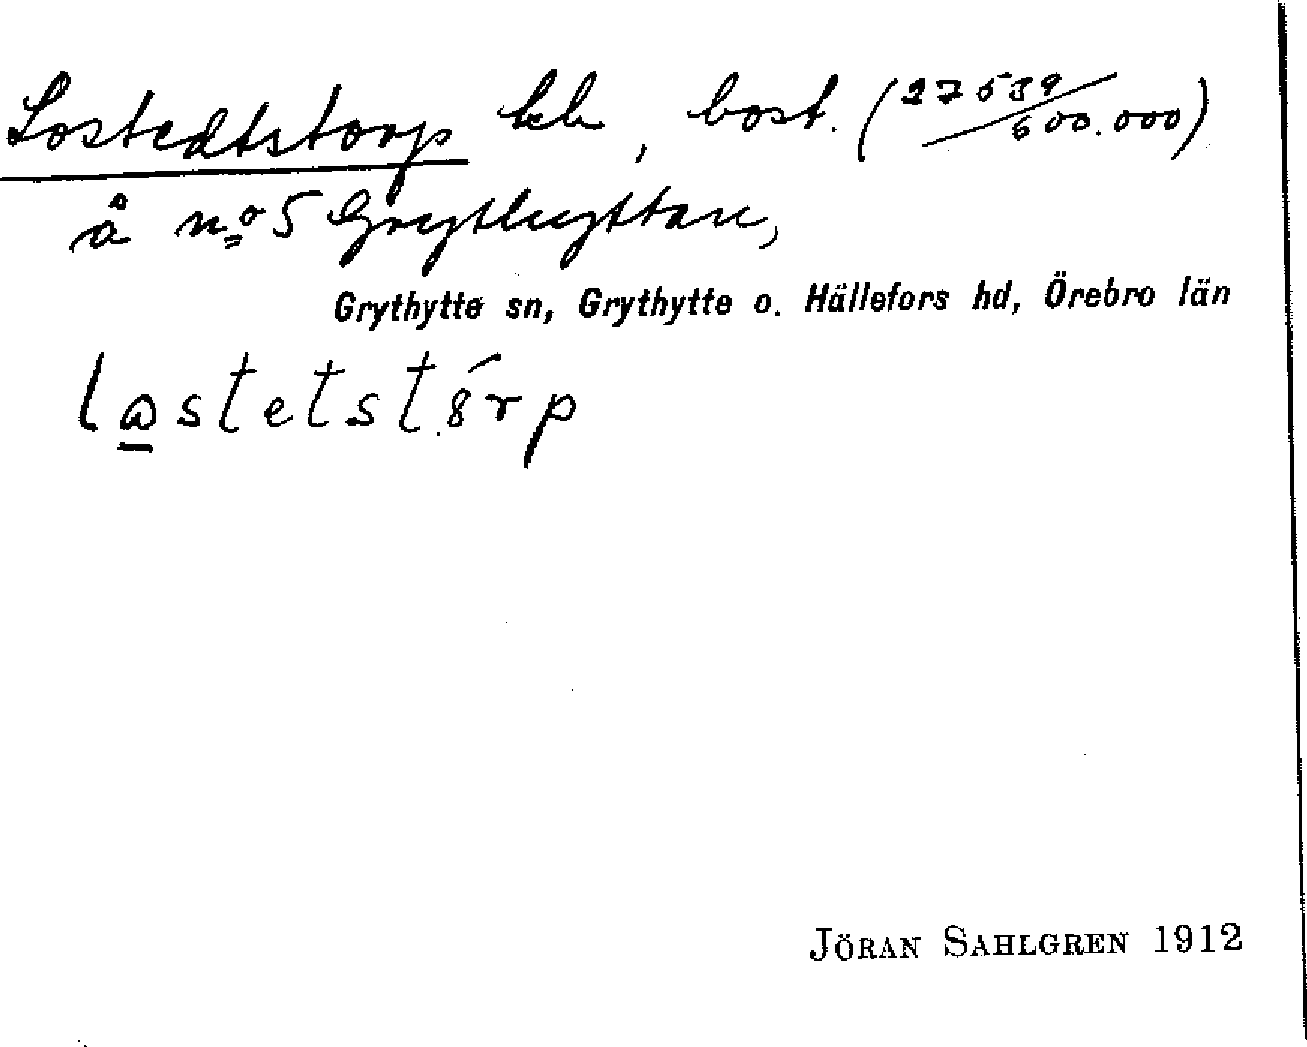 Lostedtstorp lh, bost. (27539/600.000)
å nº 5 Grythyttan,
Grythytte sn, Grythytte o. Hällefors hd, Örebro län
JÖRAN SAHLGREN 1912